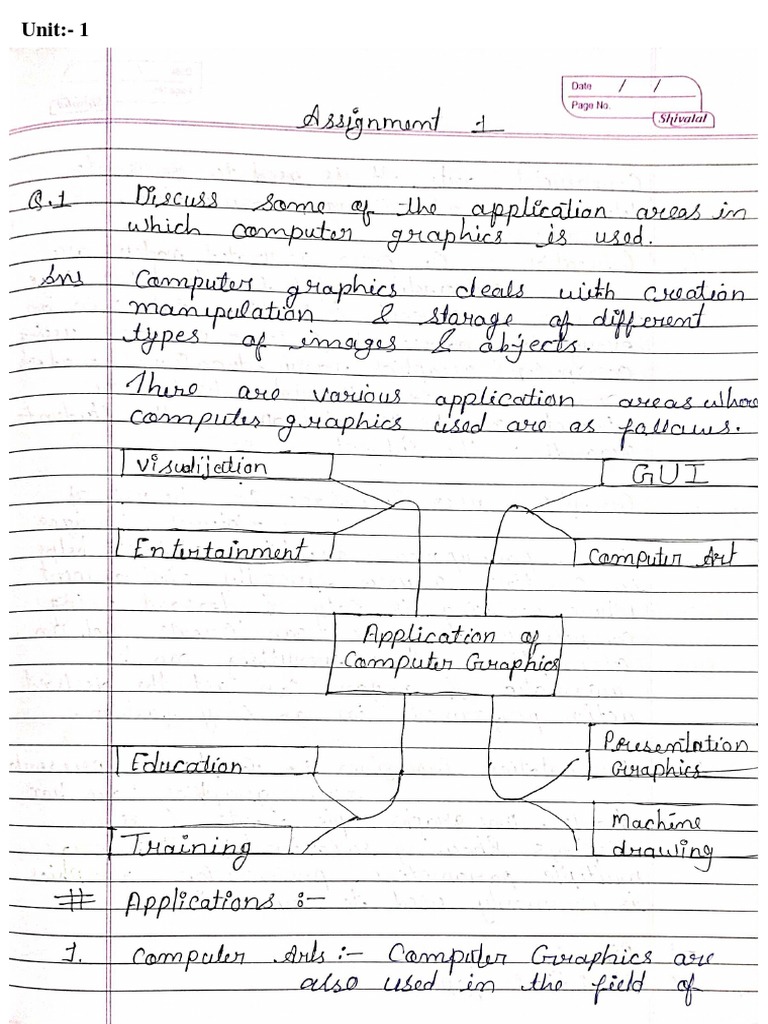 Unit:- 1
Date / /
Page No.
Shivalal
Assignment 1
Q.1 Discuss some of the application areas in
which computer graphics is used.
Ans Computer graphics deals with creation
manipulation & storage of different
types of images & objects.
There are various application areas where
computer graphics used are as follows.
Visualijection
GUI
Entertainment
Computer Art
Application of
Computer Graphics
Presentation
Graphics
Education
Machine
drawing
Training
# Applications :-
1. Computer Arts :- Computer Graphics are
also used in the field of